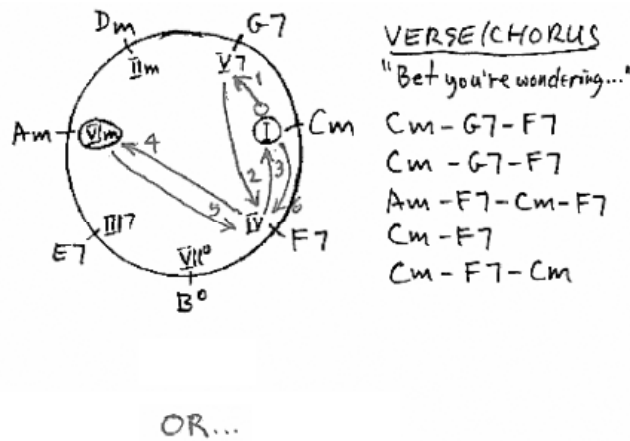 Dm
G7
IIm
V7
1
Am
VIm
4
I
Cm
2
3
5
6
IV
F7
III7
E7
VII°
B°
VERSE/CHORUS
"Bet you're wondering..."
Cm - G7 - F7
Cm - G7 - F7
Am - F7 - Cm - F7
Cm - F7
Cm - F7 - Cm
OR...